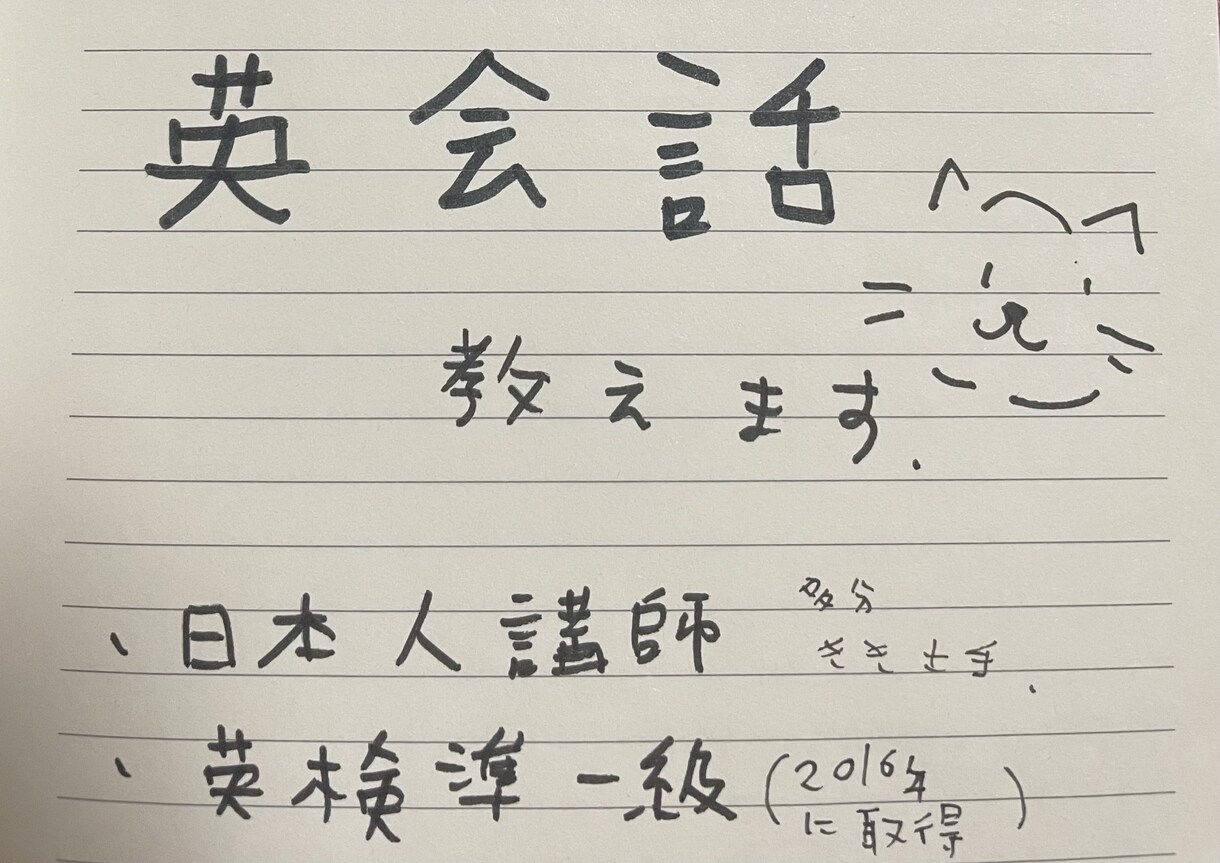 英会話
教えます.
、日本人講師
多分
きき上手.
、英検準一級(2016年
に取得)